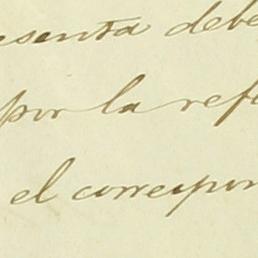 esenta debe
por la refe
el correspon